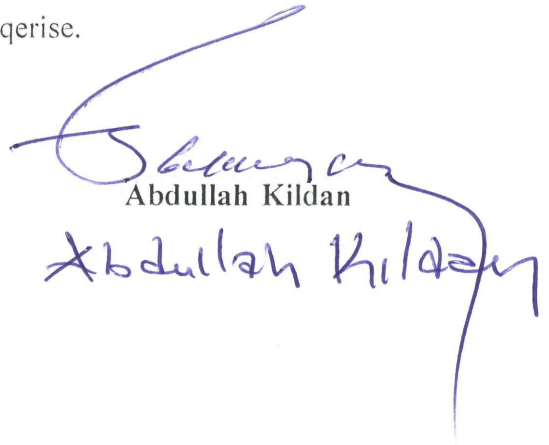 qerise.
Abdullah Kildan
Abdullah Kildan